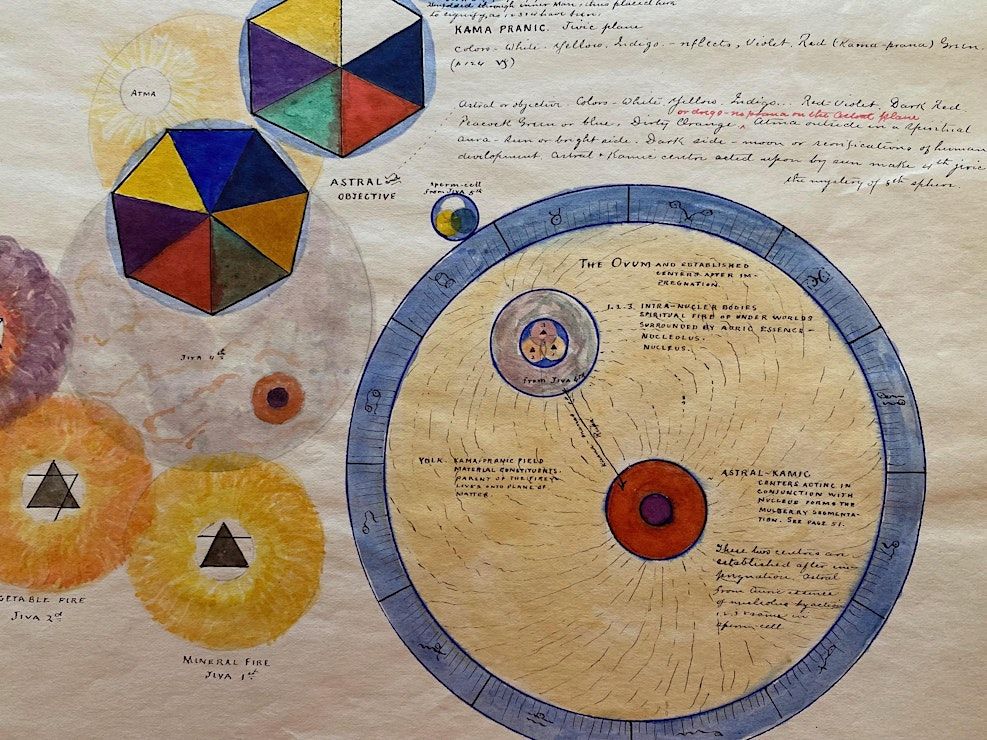 through inner Man, thus placed here
to signify, as 1 2 3 4 have been.
KAMA PRANIC. Jivic plane
Colors - White. Yellow. Indigo. - reflects, Violet. Red (Kama-prana) Green.
Astral or objective. Colors - White Yellow. Indigo... Red-Violet. Dark Red
on the astral plane
Peacock Green or blue, Dirty Orange, Atma outside in a Spiritual
aura - Sun or bright side. Dark side - moon or of human
development. Astral + Kamic centre acted upon by sun make 4th jivic
the mystery of 8th sphere.
ATMA
ASTRAL
OBJECTIVE
Sperm-cell
from JIVA 5th
JIVA 4th
THE OVUM AND ESTABLISHED
CENTERS AFTER IM-
PREGNATION.
1.2.3. INTRA-NUCLER BODIES
SPIRITUAL FIRE OF UNDER WORLDS
SURROUNDED BY AURIC ESSENCE -
NUCLEOLUS.
NUCLEUS.
from JIVA
YOLK. KAMA-PRANIC FIELD
MATERIAL CONSTITUENTS.
PARENT OF THE FIERY
LIVES ONTO PLANE OF
MATTER
ASTRAL-KAMIC
CENTERS ACTING IN
CONJUNCTION WITH
NUCLEUS FORMS THE
MULBERRY SEGMENTA-
TION. SEE PAGE 51.
These two centres are
established after im-
pregnation. Astral
from Auric essence
of nucleolus by action
1.2.3 same in
sperm-cell
GETABLE FIRE
JIVA 2d
MINERAL FIRE
JIVA 1st